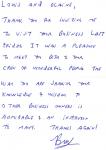 LEWIS AND ELAINE,
THANK YOU FOR INVITING ME
TO VISIT YOUR BUSINESS LAST
FRIDAY. IT WAS A PLEASURE
TO MEET YOU BOTH & YOUR
CREW OF WONDERFUL PEOPLE. THE
WAY YOU ARE SHARING YOUR
KNOWLEDGE & WISDOM TO
OTHER BUSINESS OWNERS IS
ADMIRABLE & AN INSPIRATION
TO MANY. THANKS AGAIN!